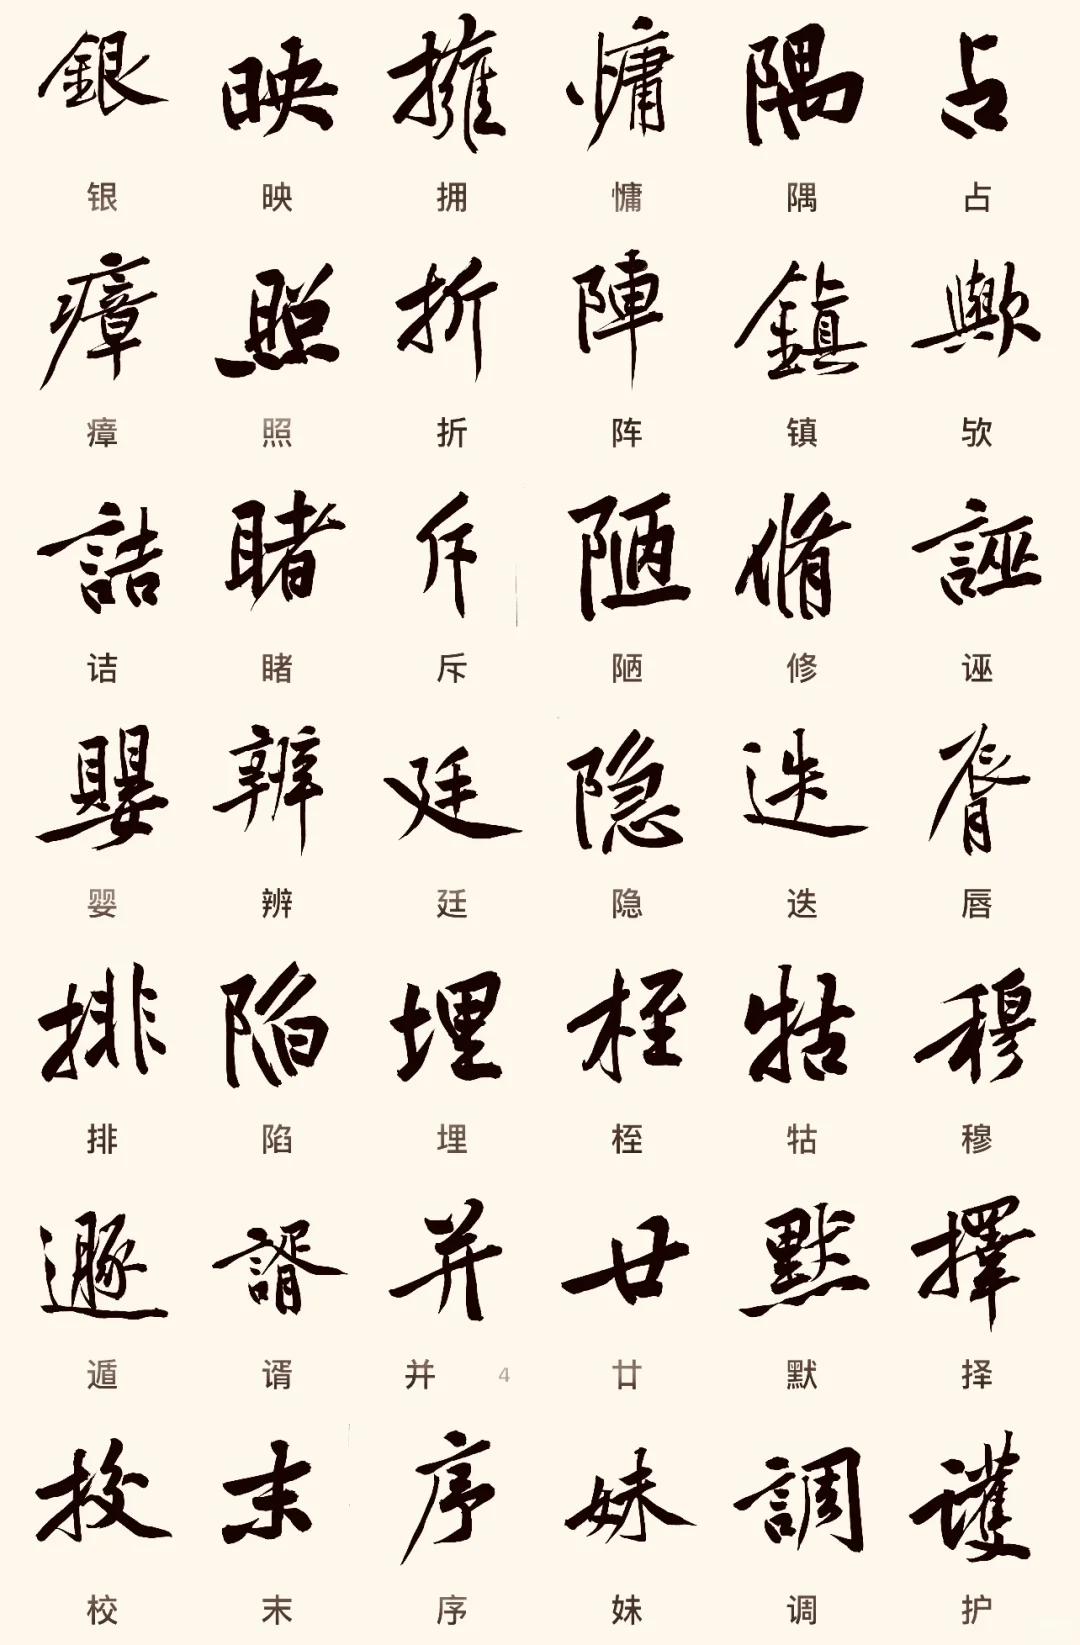 銀 映 擁 慵 隅 占
银 映 拥 慵 隅 占
瘴 照 折 陣 鎮 歟
瘴 照 折 阵 镇 欤
詰 睹 斥 陋 脩 誣
诘 睹 斥 陋 修 诬
嬰 辨 廷 隐 迭 脣
婴 辨 廷 隐 迭 唇
排 陷 埋 桎 牯 穆
排 陷 埋 桎 牯 穆
遯 諝 并 廿 默 擇
遁 谞 并 4 廿 默 择
校 末 序 妹 調 護
校 末 序 妹 调 护